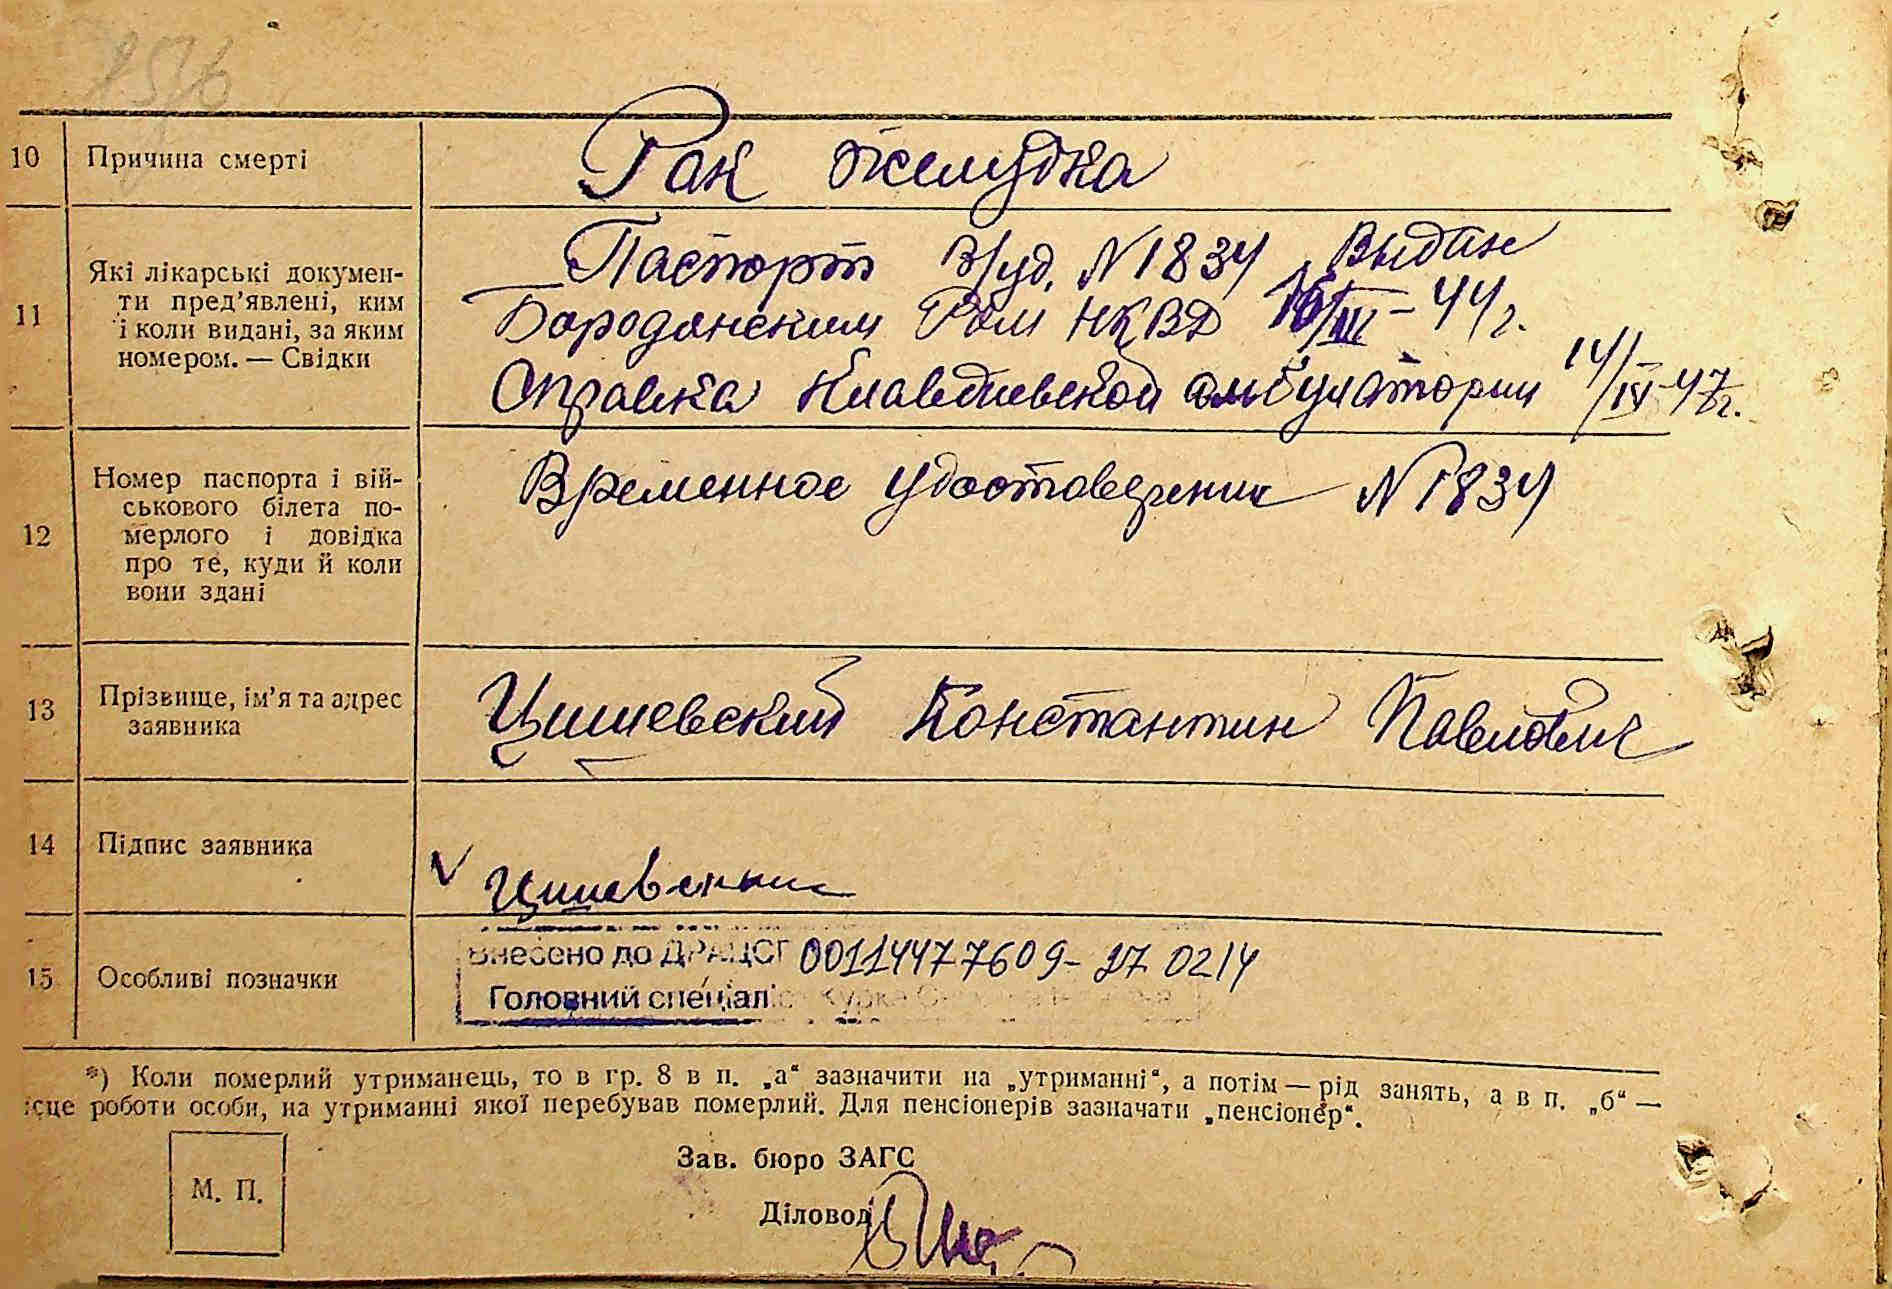 10 Причина смерті Рак желудка
11 Які лікарські докумен-
ти пред’явлені, ким
і коли видані, за яким
номером. — Свідки
Паспорт В/уд. N 1834 Выдан
Бородянским Ром НКВД 16/III – 44 г.
Справка Клавдиевской амбулатории 14/IV-47г.
12 Номер паспорта і вій-
ськового білета по-
мерлого і довідка
про те, куди й коли
вони здані
Временное удостоверение N 1834
13 Прізвище, ім’я та адрес
заявника
Цишевский Константин Павлович
14 Підпис заявника
V Цишевский
15 Особливі позначки
Внесено до ДРАЦСГ 00114477609- 27 0214
Головний спеціаліст
*) Коли померлий утриманець, то в гр. 8 в п. „а“ зазначити на „утриманні“, а потім — рід занять, а в п. „б“ —
ісце роботи особи, на утриманні якої перебував померлий. Для пенсіонерів зазначати „пенсіонер“.
Зав. бюро ЗАГС
М. П.
Діловод